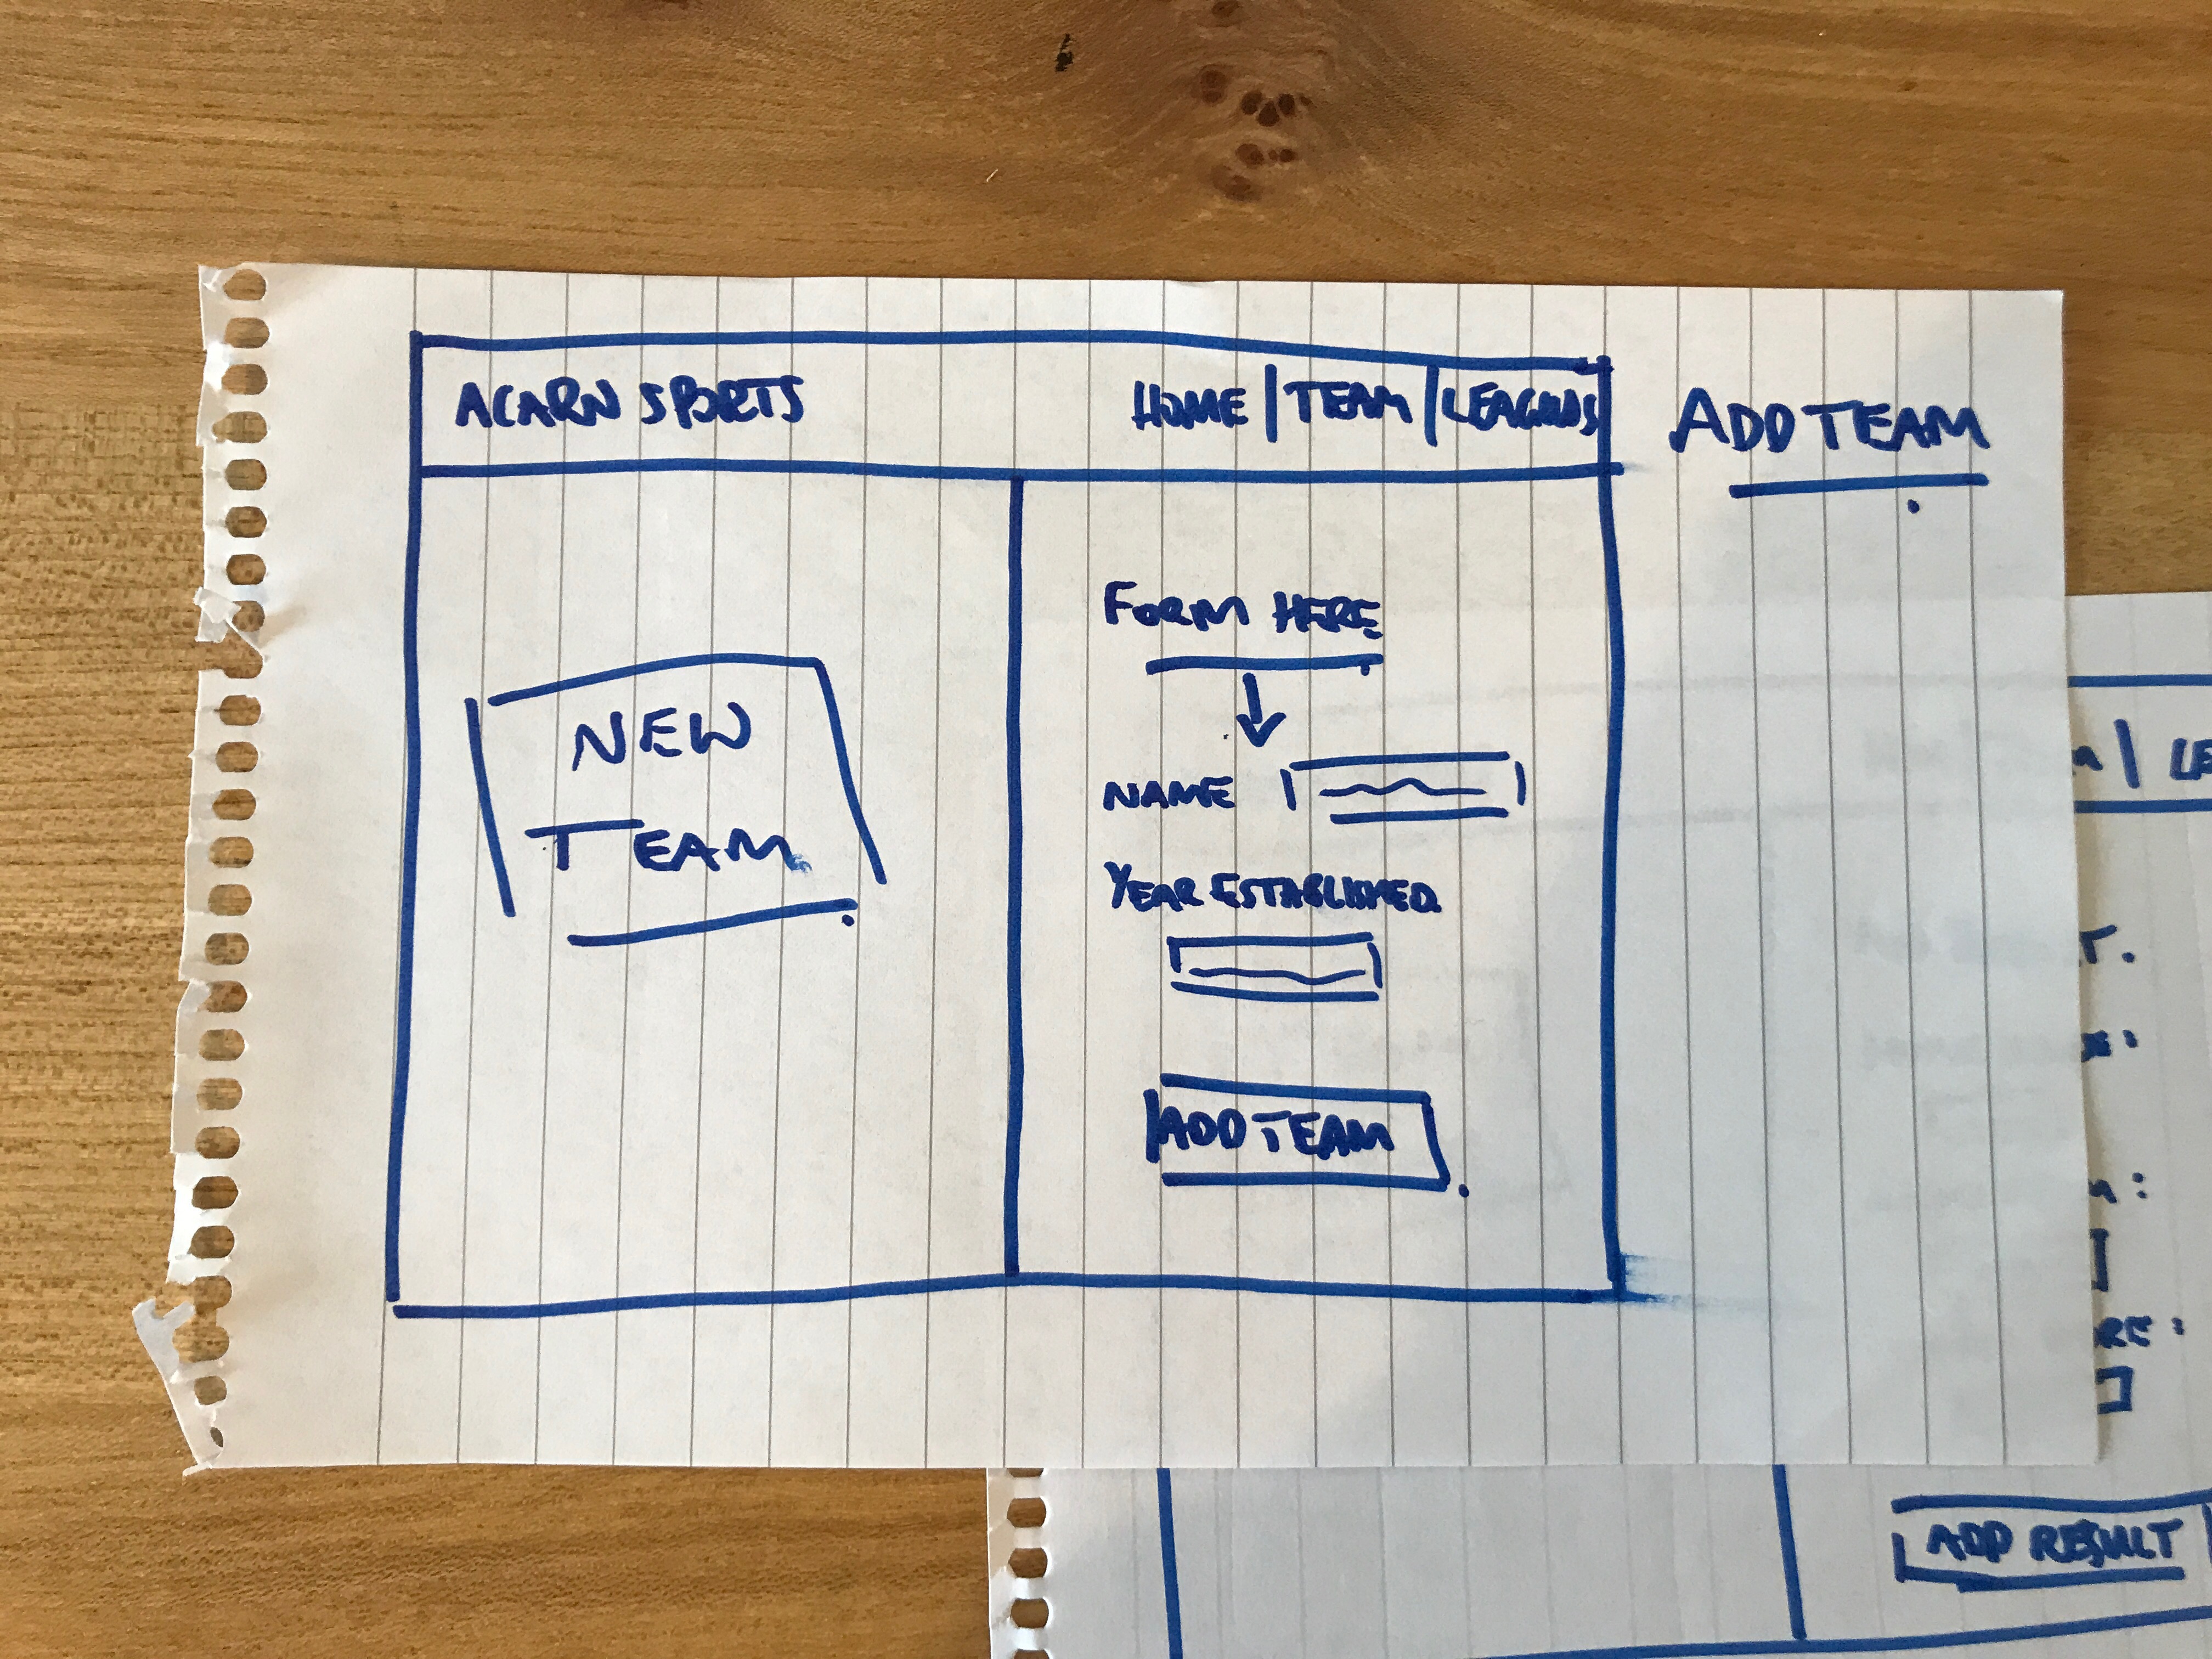 ACARN SPORTS
HOME | TEAM | LEAGUES
ADD TEAM
NEW
TEAM
FORM HERE
NAME
YEAR ESTABLISHED
ADD TEAM
| LE
T.
:
:
RE:
ADD RESULT